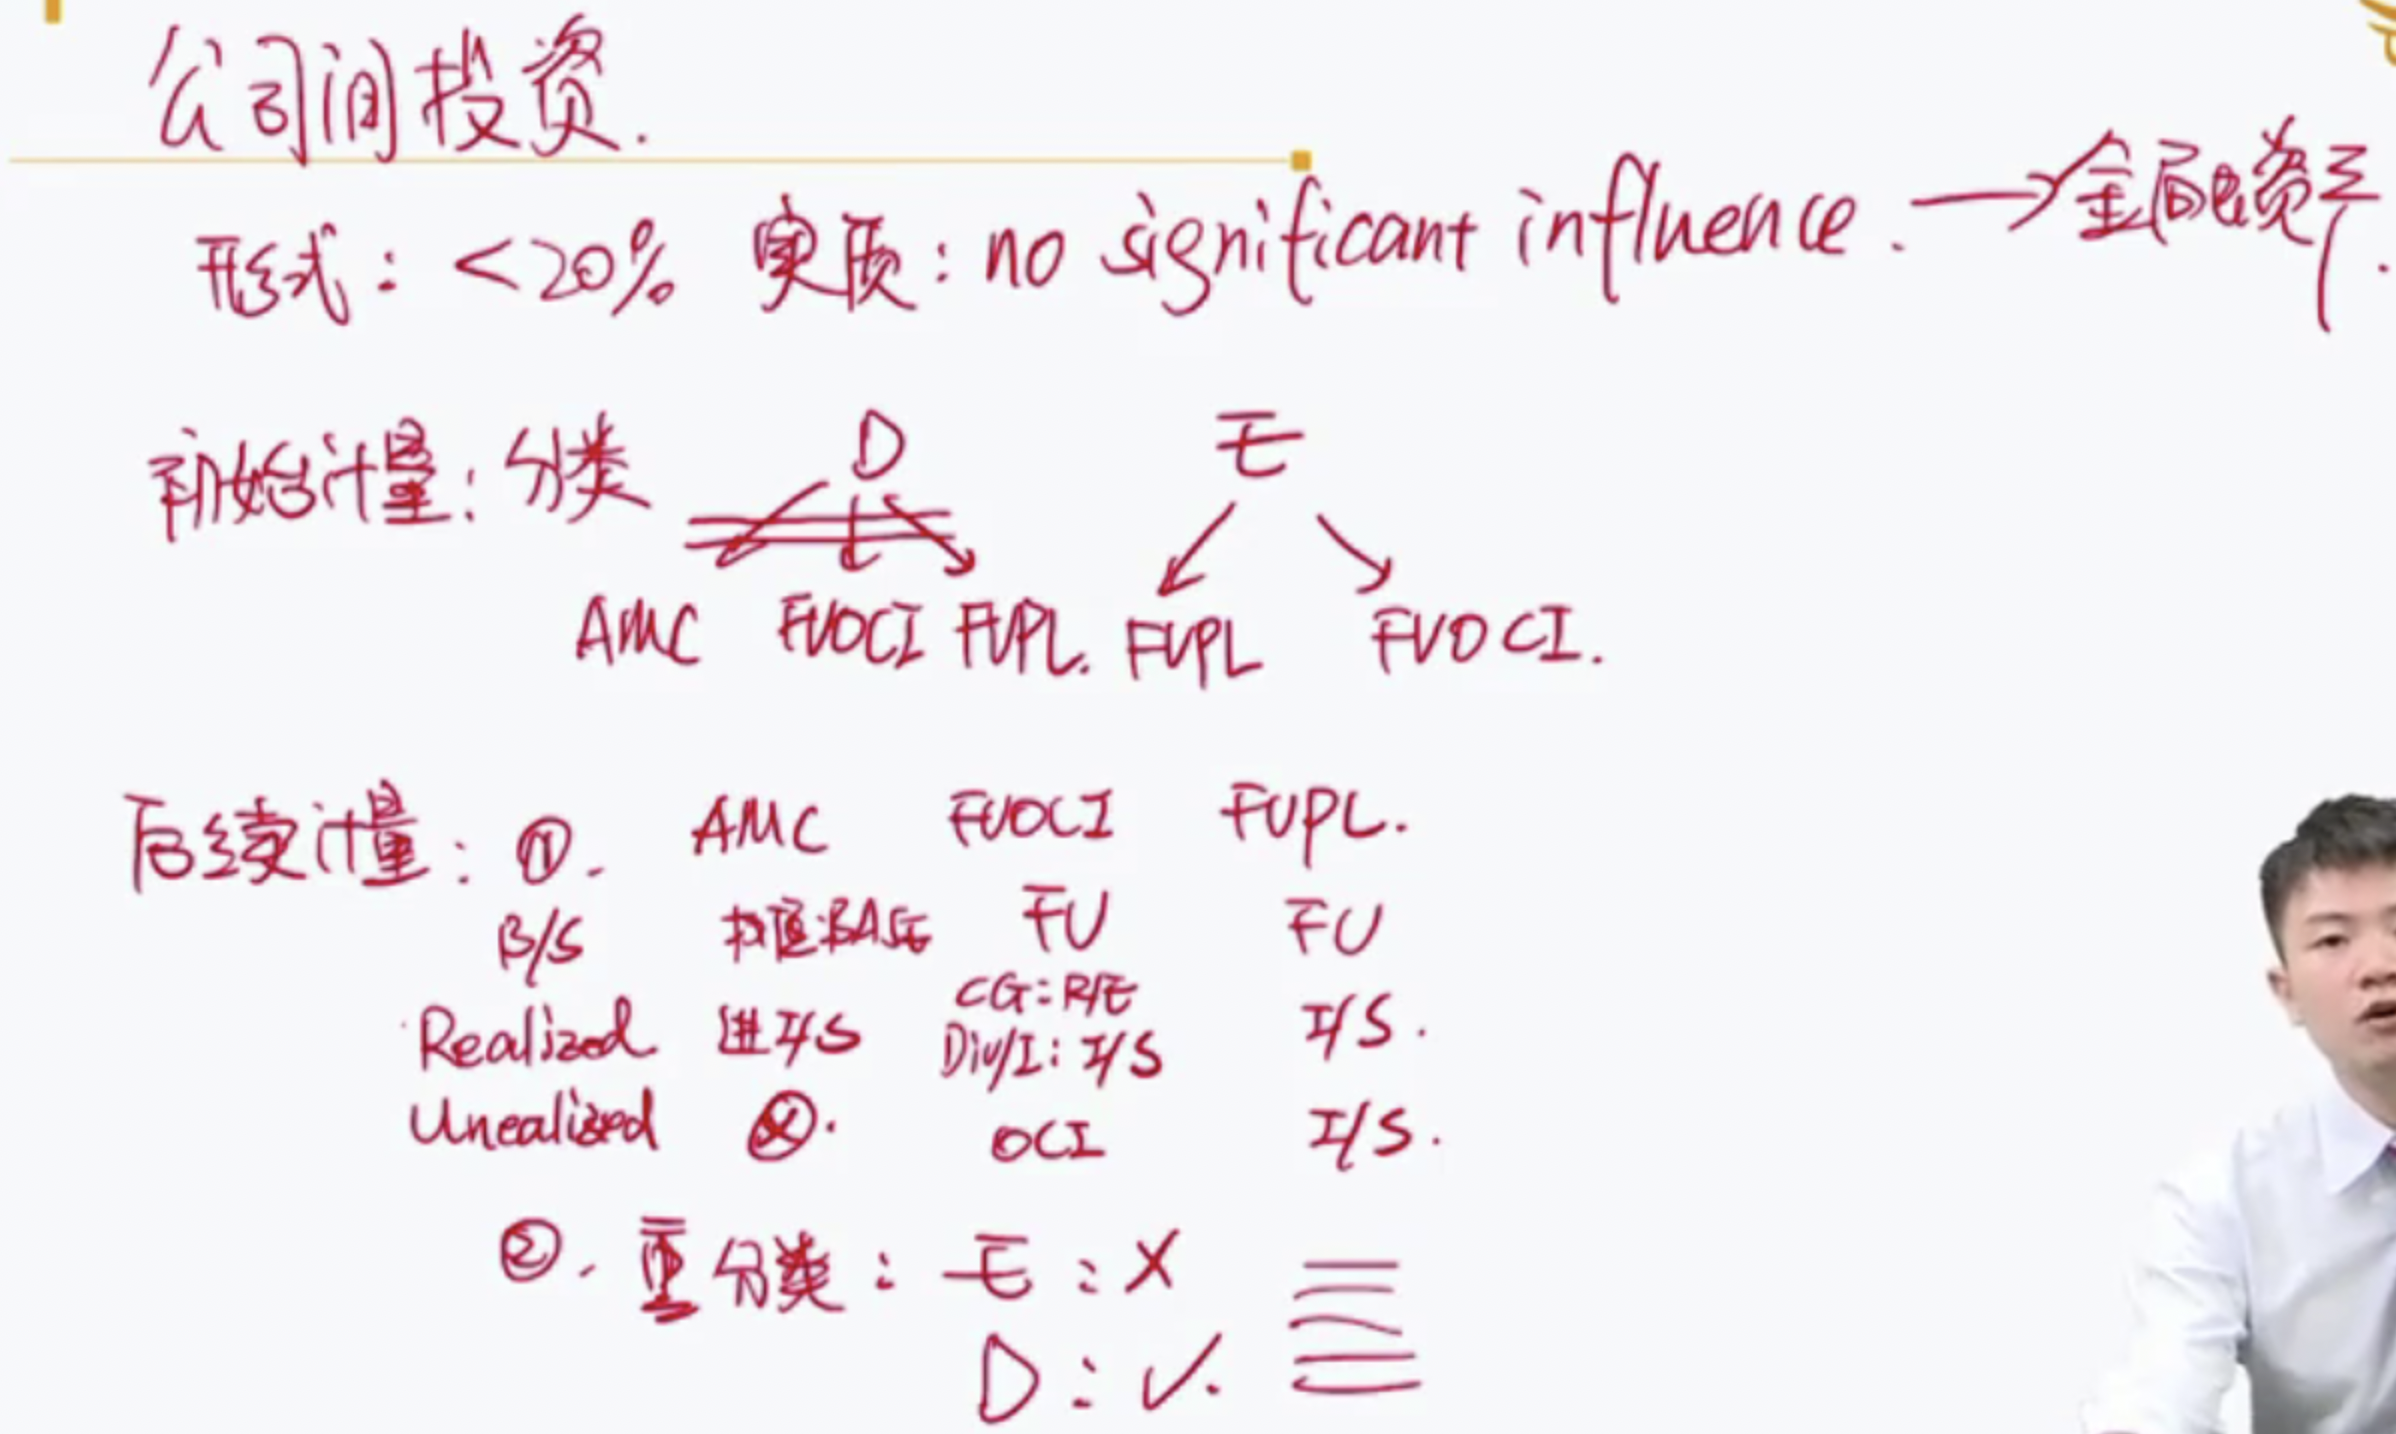 公司间投资.
形式: <20% 实质: no significant influence. → 金融资产.
初始计量: 分类 D E
AMC FVOCI FVPL. FVPL FVOCI.
后续计量: ①. AMC FVOCI FVPL.
B/S BASE FV FV
Realized 进I/S CG: R/E Div/I: I/S I/S.
Unealized ⊗. OCI I/S.
②. 重分类: E: ×
D: ✓.